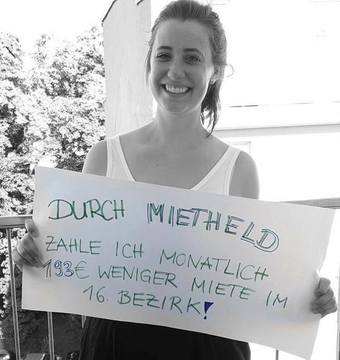 DURCH MIETHELD
ZAHLE ICH MONATLICH
193€ WENIGER MIETE IM
16. BEZIRK!